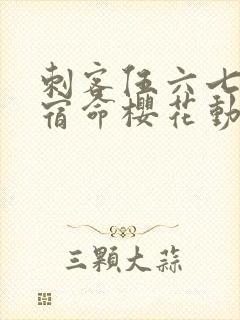 刺客伍六七
宿命樱花動
三顆大蒜